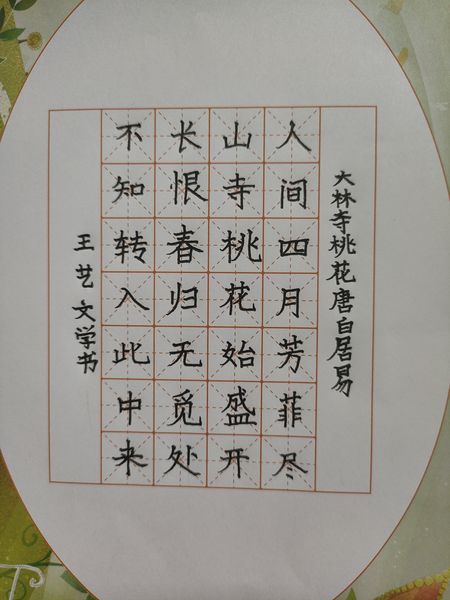 大林寺桃花唐白居易
人间四月芳菲尽
山寺桃花始盛开
长恨春归无觅处
不知转入此中来
王艺文学书